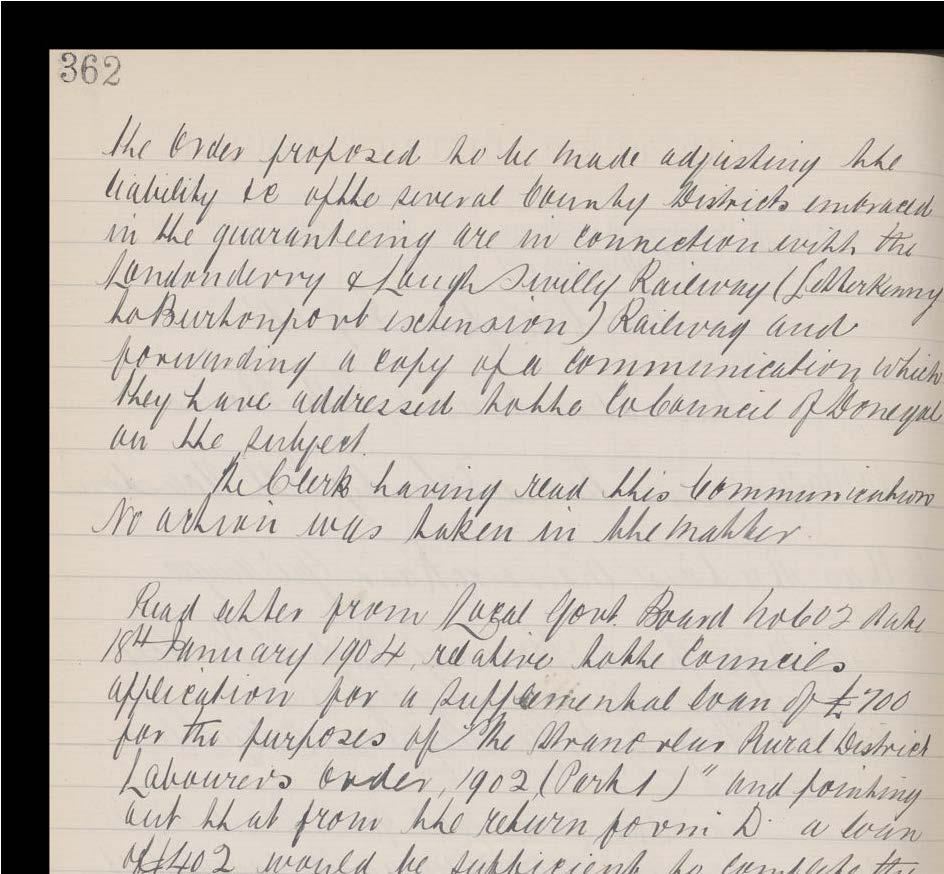 362
the Order proposed to be made adjusting the
liability &c of the several County Districts embraced
in the guaranteeing are in connection with the
Londonderry & Lough Swilly Railway (Letterkenny
to Burtonport extension) Railway and
forwarding a copy of a communication which
they have addressed to the Co Council of Donegal
on the subject.
The Clerk having read this Communication
No action was taken in the matter.
Read letter from Local Govt. Board No 602 date
18th January 1904, relative to the Councils
application for a supplemental loan of £700
for the purposes of "The Stranorlar Rural District
Labourers Order, 1902 (Part 1)" and pointing
out that from the return form D. a loan
of £402 would be sufficient to complete the